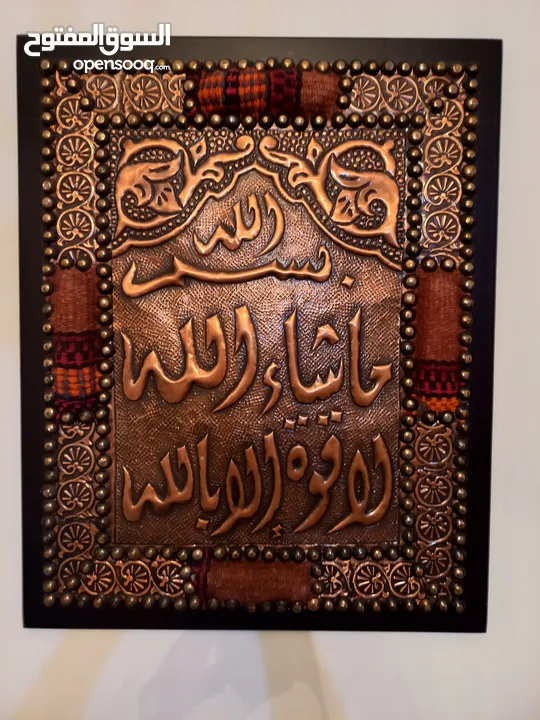 السوق المفتوح
opensooq.com
بسم الله
ما شاء الله
لا قوة إلا بالله